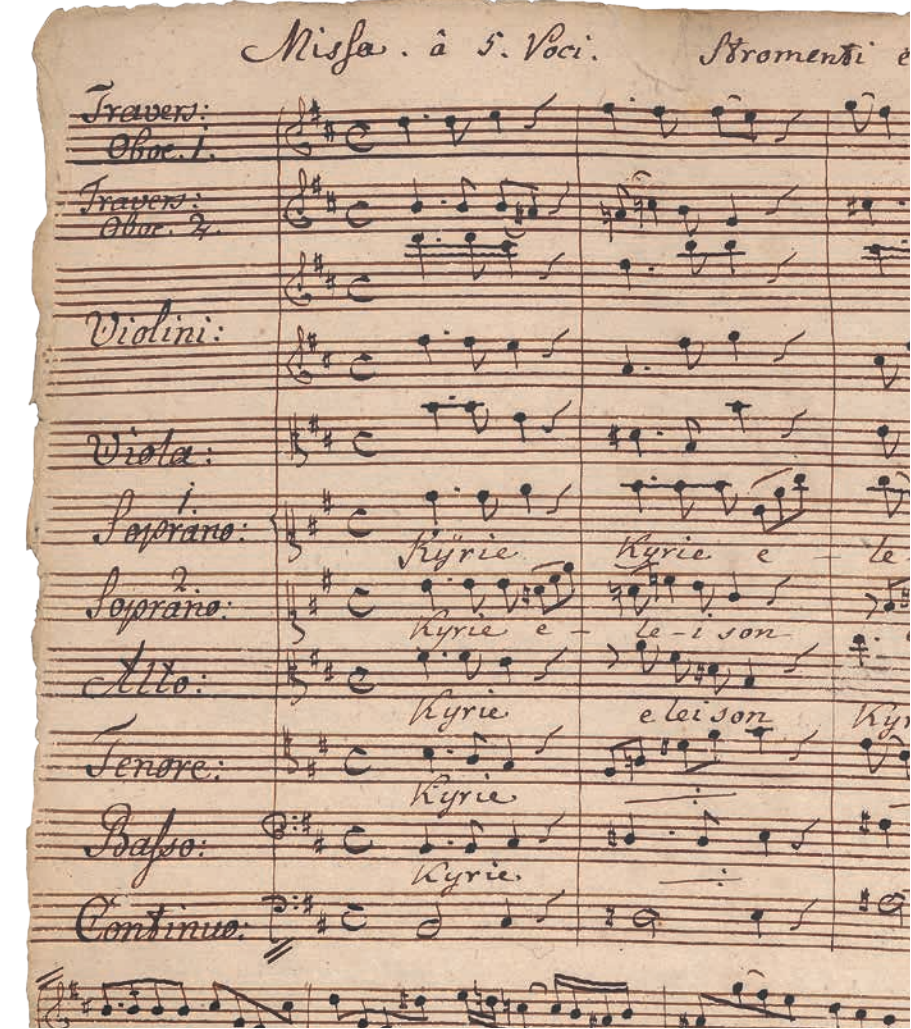 Missa. â 5. Voci. Stromenti e
Travers:
Oboe. 1.
Travers:
Oboe. 2.
Violini:
Viola:
1.
Soprano:
Kyrie Kyrie e - le
2
Soprano:
Kyrie e - le - i son
Alto:
Kyrie e lei son Kyr
Tenore:
Kyrie
Basso:
Kyrie.
Continuo: